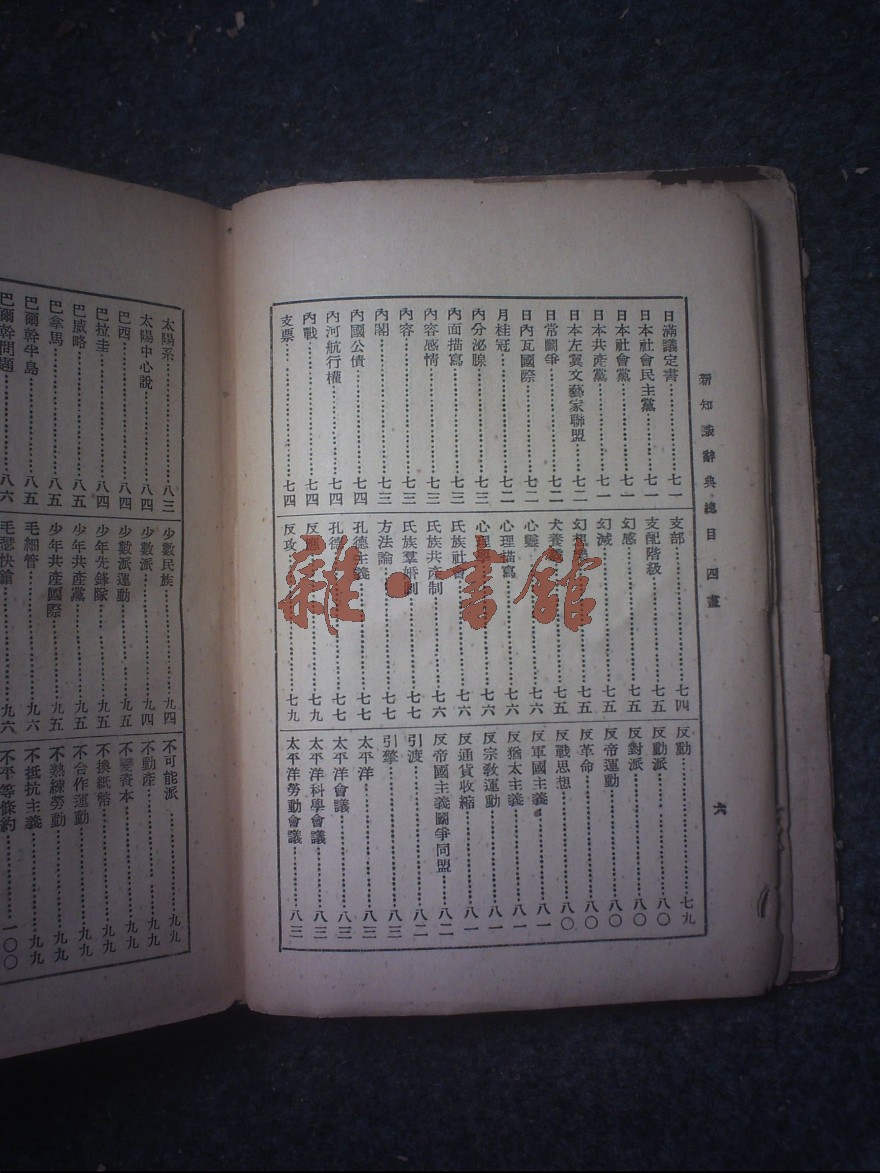 新知識辭典總目 四畫
六
日滿議定書……七一
日本社會民主黨……七一
日本社會黨……七一
日本共產黨……七一
日本左翼文藝家聯盟……七二
日常鬭爭……七二
日內瓦國際……七二
月桂冠……七二
內分泌腺……七三
內面描寫……七三
內容感情……七三
內容……七三
內閣……七三
內國公債……七四
內河航行權……七四
內戰……七四
支票……七四
支部……七四
支配階級……七五
幻感……七五
幻滅……七五
幻想……七五
犬養……七五
心靈……七六
心理描寫……七六
心理學……七六
氏族社會……七六
氏族共產制……七六
氏族羣婚制……七七
方法論……七七
孔德主義……七七
孔德……七七
反應……七九
反攻……七九
反動……七九
反動派……八〇
反對派……八〇
反帝運動……八〇
反革命……八〇
反戰思想……八〇
反軍國主義……八一
反猶太主義……八一
反宗教運動……八一
反通貨收縮……八一
反帝國主義鬭爭同盟……八二
引渡……八二
引擎……八三
太平洋……八三
太平洋會議……八三
太平洋科學會議……八三
太平洋勞動會議……八三
太陽系……八三
太陽中心說……八四
巴西……八四
巴拉圭……八四
巴威略……八五
巴拿馬……八五
巴爾幹半島……八五
巴爾幹問題……八六
少數民族……九四
少數派……九四
少數派運動……九五
少年先鋒隊……九五
少年共產黨……九五
少年共產國際……九五
毛細管……九六
毛瑟快鎗……九六
不可能派……九九
不動產……九九
不變資本……九九
不換紙幣……九九
不合作運動……九九
不熟練勞動……九九
不抵抗主義……九九
不平等條約……一〇〇
雜·書館